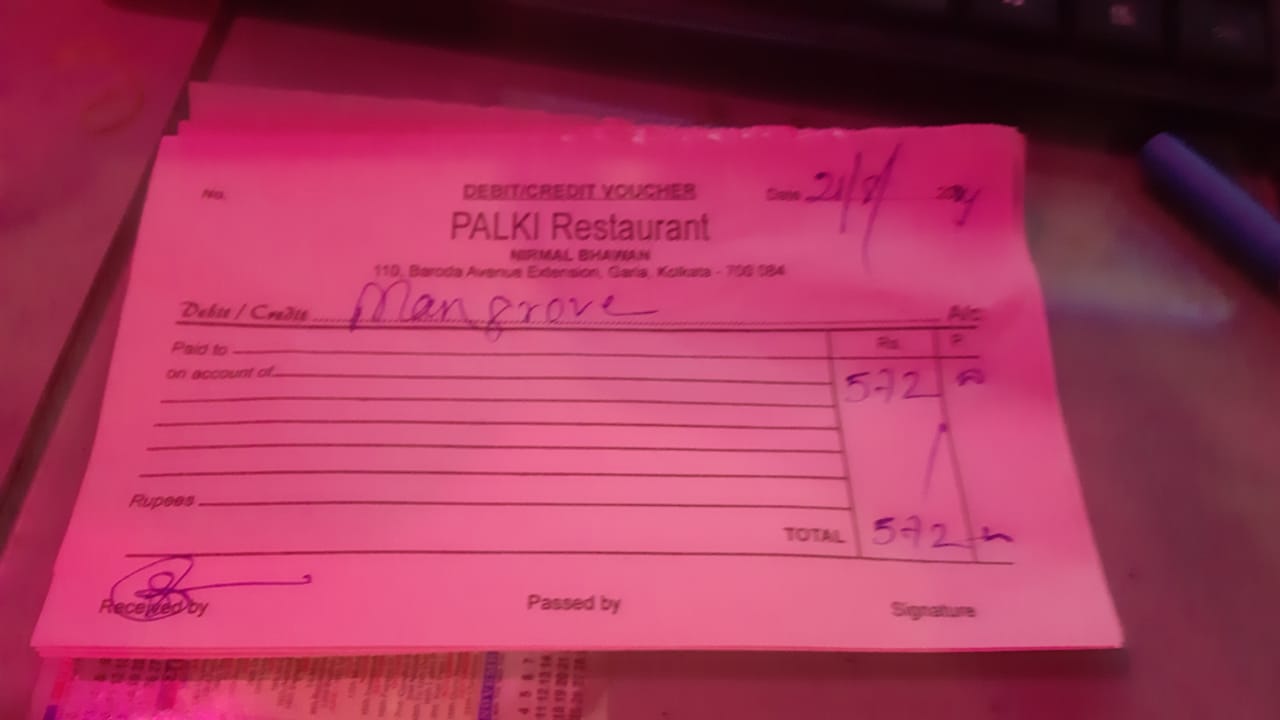 No.
DEBIT/CREDIT VOUCHER
Date 21/8/
PALKI Restaurant
NIRMAL BHAWAN
110, Baroda Avenue Extension, Garia, Kolkata - 700 084
Debit / Credit Mangrove A/c
Paid to Rs. P.
on account of 572
Rupees
TOTAL 572
Received by Passed by Signature